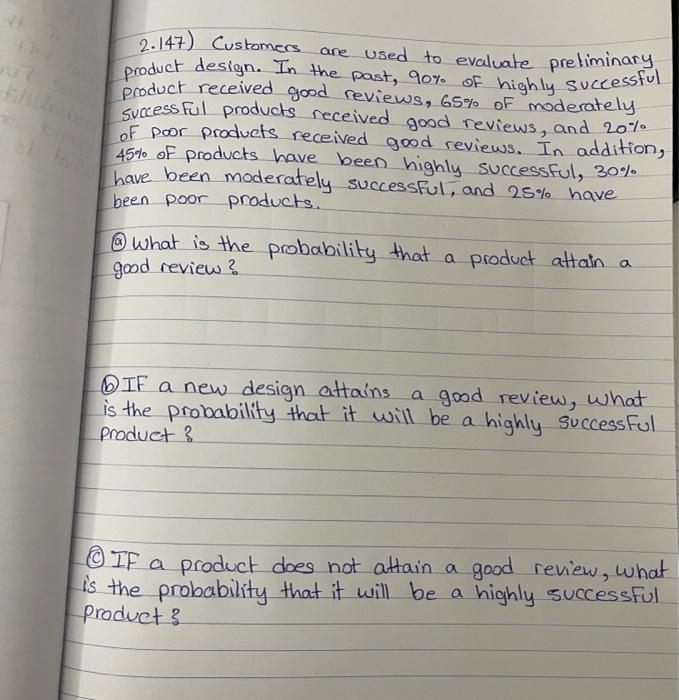 2.147) Customers are used to evaluate preliminary
product design. In the past, 90% of highly successful
product received good reviews, 65% of moderately
successful products received good reviews, and 20%
of poor products received good reviews. In addition,
45% of products have been highly successful, 30%
have been moderately successful, and 25% have
been poor products.
ⓐ what is the probability that a product attain a
good review?
ⓑ IF a new design attains a good review, what
is the probability that it will be a highly successful
product?
ⓒ IF a product does not attain a good review, what
is the probability that it will be a highly successful
product?